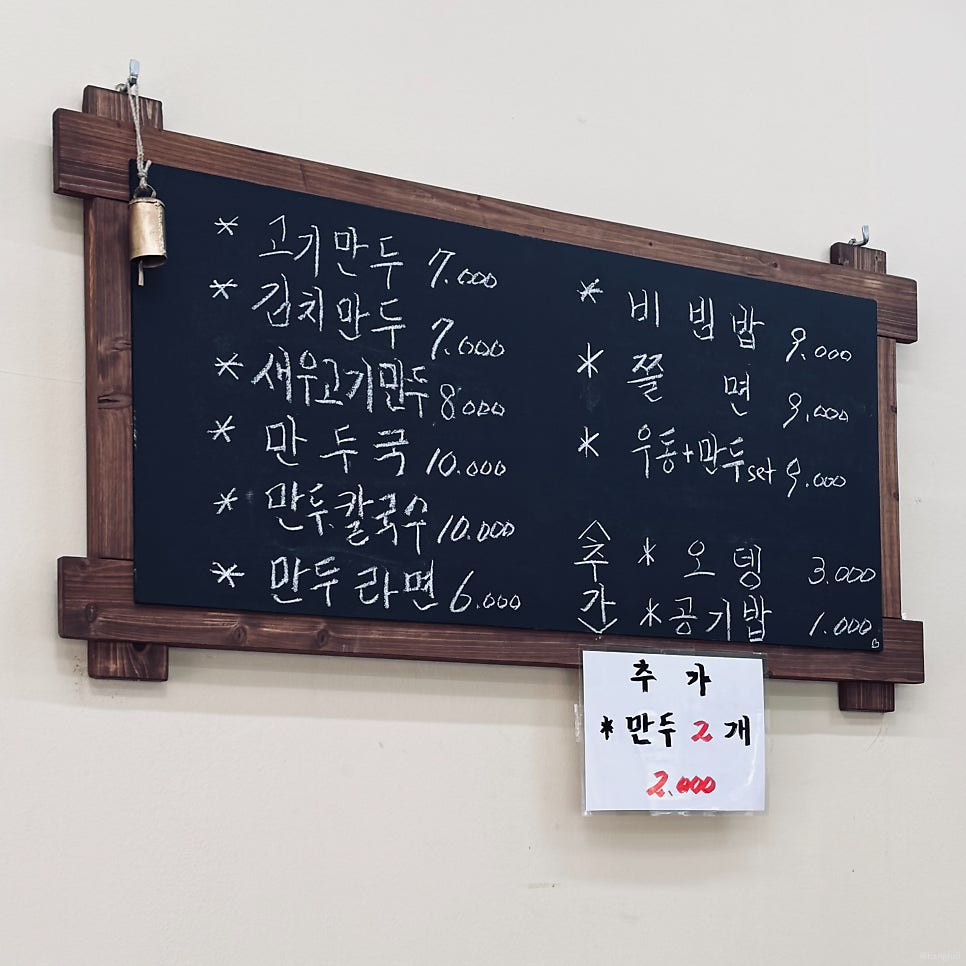 * 고기만두 7.000
* 김치만두 7.000
* 새우고기만두 8000
* 만두국 10.000
* 만두칼국수 10.000
* 만두라면 6.000
* 비빔밥 9.000
* 쫄면 9.000
* 우동+만두set 9.000
<추가>
* 오뎅 3.000
* 공기밥 1.000
추가
* 만두 2개
2.000